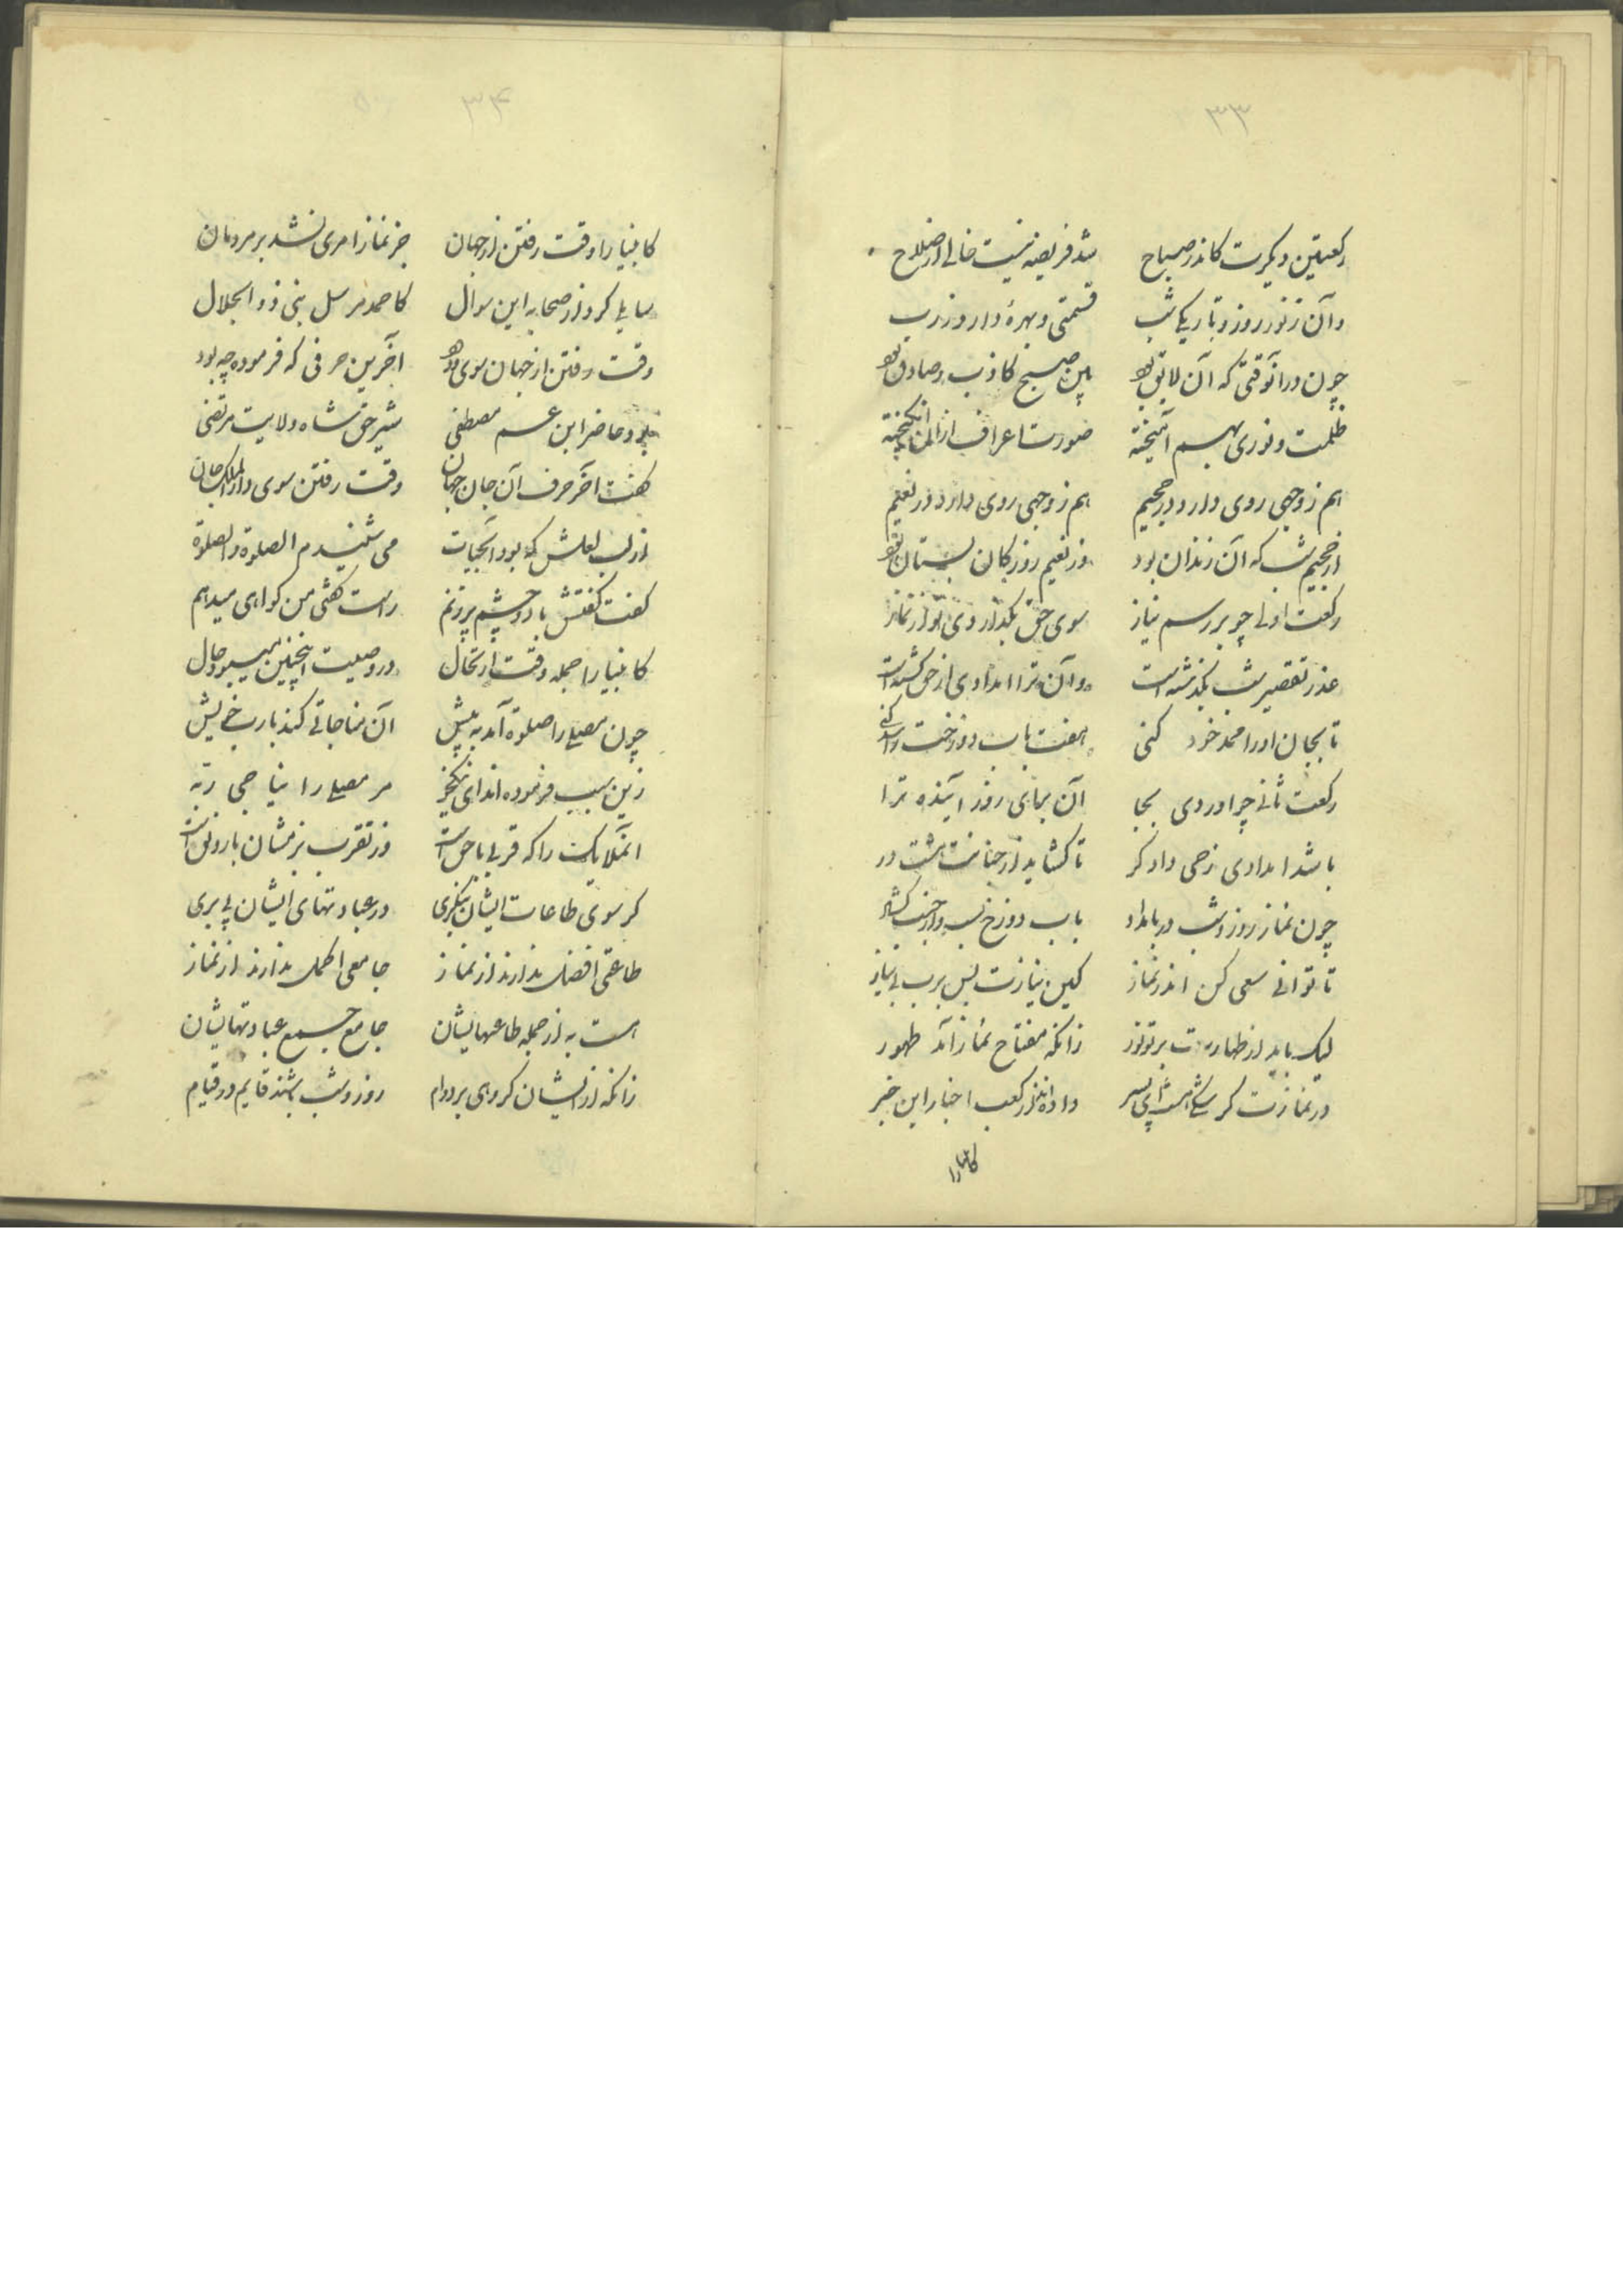 ۳۳
رکعتین دیگرت کاندر صباح شد فریضه نیست خالی از صلاح
وآن ز نور روز و تاریکی شب قسمتی و بهرهٔ دارد ز رب
چون در آنوقتی که آن لایق بود بین صبح کاذب و صادق بود
ظلمت و نوری بهم آمیخته صورت اعراف از آن انگیخته
هم ز وجهی روی دارد در جحیم هم ز وجهی روی دارد در نعیم
از جحیم شب که آن زندان بود وز نعیم روز کان بستان بود
رکعت اولی چو بر رسم نیاز سوی حق بگذاردی تو از نماز
عذر تقصیر شب بگذشته است وآن ترا امدادی از حق گشته است
تا بجان او را محمد خود کنی هفت باب دوزخت را سد کنی
رکعت ثانی چو آوردی بجا آن برای روز آینده ترا
باشد امدادی ز حی دادگر تا گشاید از جنانت هشت در
چون نماز روز و شب در بامداد باب دوزخ بست و از جنت گشاد
تا توانی سعی کن اندر نماز کین نیازت بس برب بی نیاز
لیک باید از طهارت برتو نور زانکه مفتاح نماز آمد طهور
در نمازت گر شکی هست ای پسر داده اند از کعب اخبار این خبر
کانبیا را
۳۴
کانبیا را وقت رفتن از جهان جز نماز امری نشد بر مردمان
سایلی کرد از صحابه این سوال کاحمد مرسل نبی ذو الجلال
وقت رفتن از جهان سوی ودود آخرین حرفی که فرموده چه بود
بود حاضر ابن عم مصطفی شیر حق شاه ولایت مرتضی
گفت آخر حرف آن جان جهان وقت رفتن سوی دار الملک جان
از لب لعلش که بود آبحیات می شنیدم الصلوة و الصلوة
گفت گفتش با دو چشم پر ز نم راست گفتی من گواهی میدهم
کانبیا را جمله وقت ارتحال در وصیت اینچنین میبود حال
چون مصلی را صلوة آمد به پیش آن مناجاتی کند با رب خویش
زین سبب فرموده اند ای نیکخو مر مصلی را یناجی ربه
آنملایک را که قربی با حق است وز تقرب بزمشان با رونق است
گر سوی طاعات ایشان بنگری در عبادتهای ایشان پی بری
طاعتی افضل ندارند از نماز جامعی اکمل ندارند از نماز
هست به از جمله طاعتهایشان جامع جمیع عبادتهایشان
زانکه از ایشان گروهی بر دوام روز و شب باشند قایم در قیام